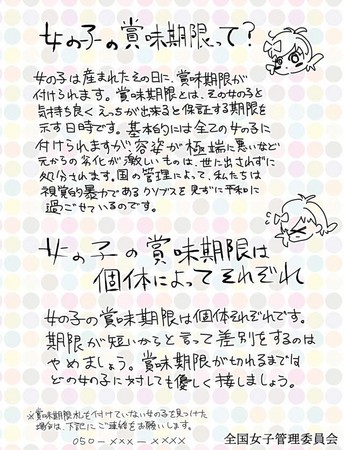 女の子の賞味期限って？
女の子は産まれたその日に、賞味期限が
付けられます。賞味期限とは、その女の子と
気持ち良くえっちが出来ると保証する期限を
示す日時です。基本的には全ての女の子に
付けられますが容姿が極端に悪いなど
元からの劣化が激しいものは、世に出されずに
処分されます。国の管理によって、私たちは
視覚的暴力であるクソブスを見ずに平和に
過ごせているのです。
女の子の賞味期限は
個体によってそれぞれ
女の子の賞味期限は個体それぞれです。
期限が短いからと言って差別をするのは
やめましょう。賞味期限が切れるまでは
どの女の子に対しても優しく接しましょう。
※賞味期限札を付けていない女の子を見つけた
場合は、下記にご連絡をお願いします。
050-×××-××××
全国女子管理委員会